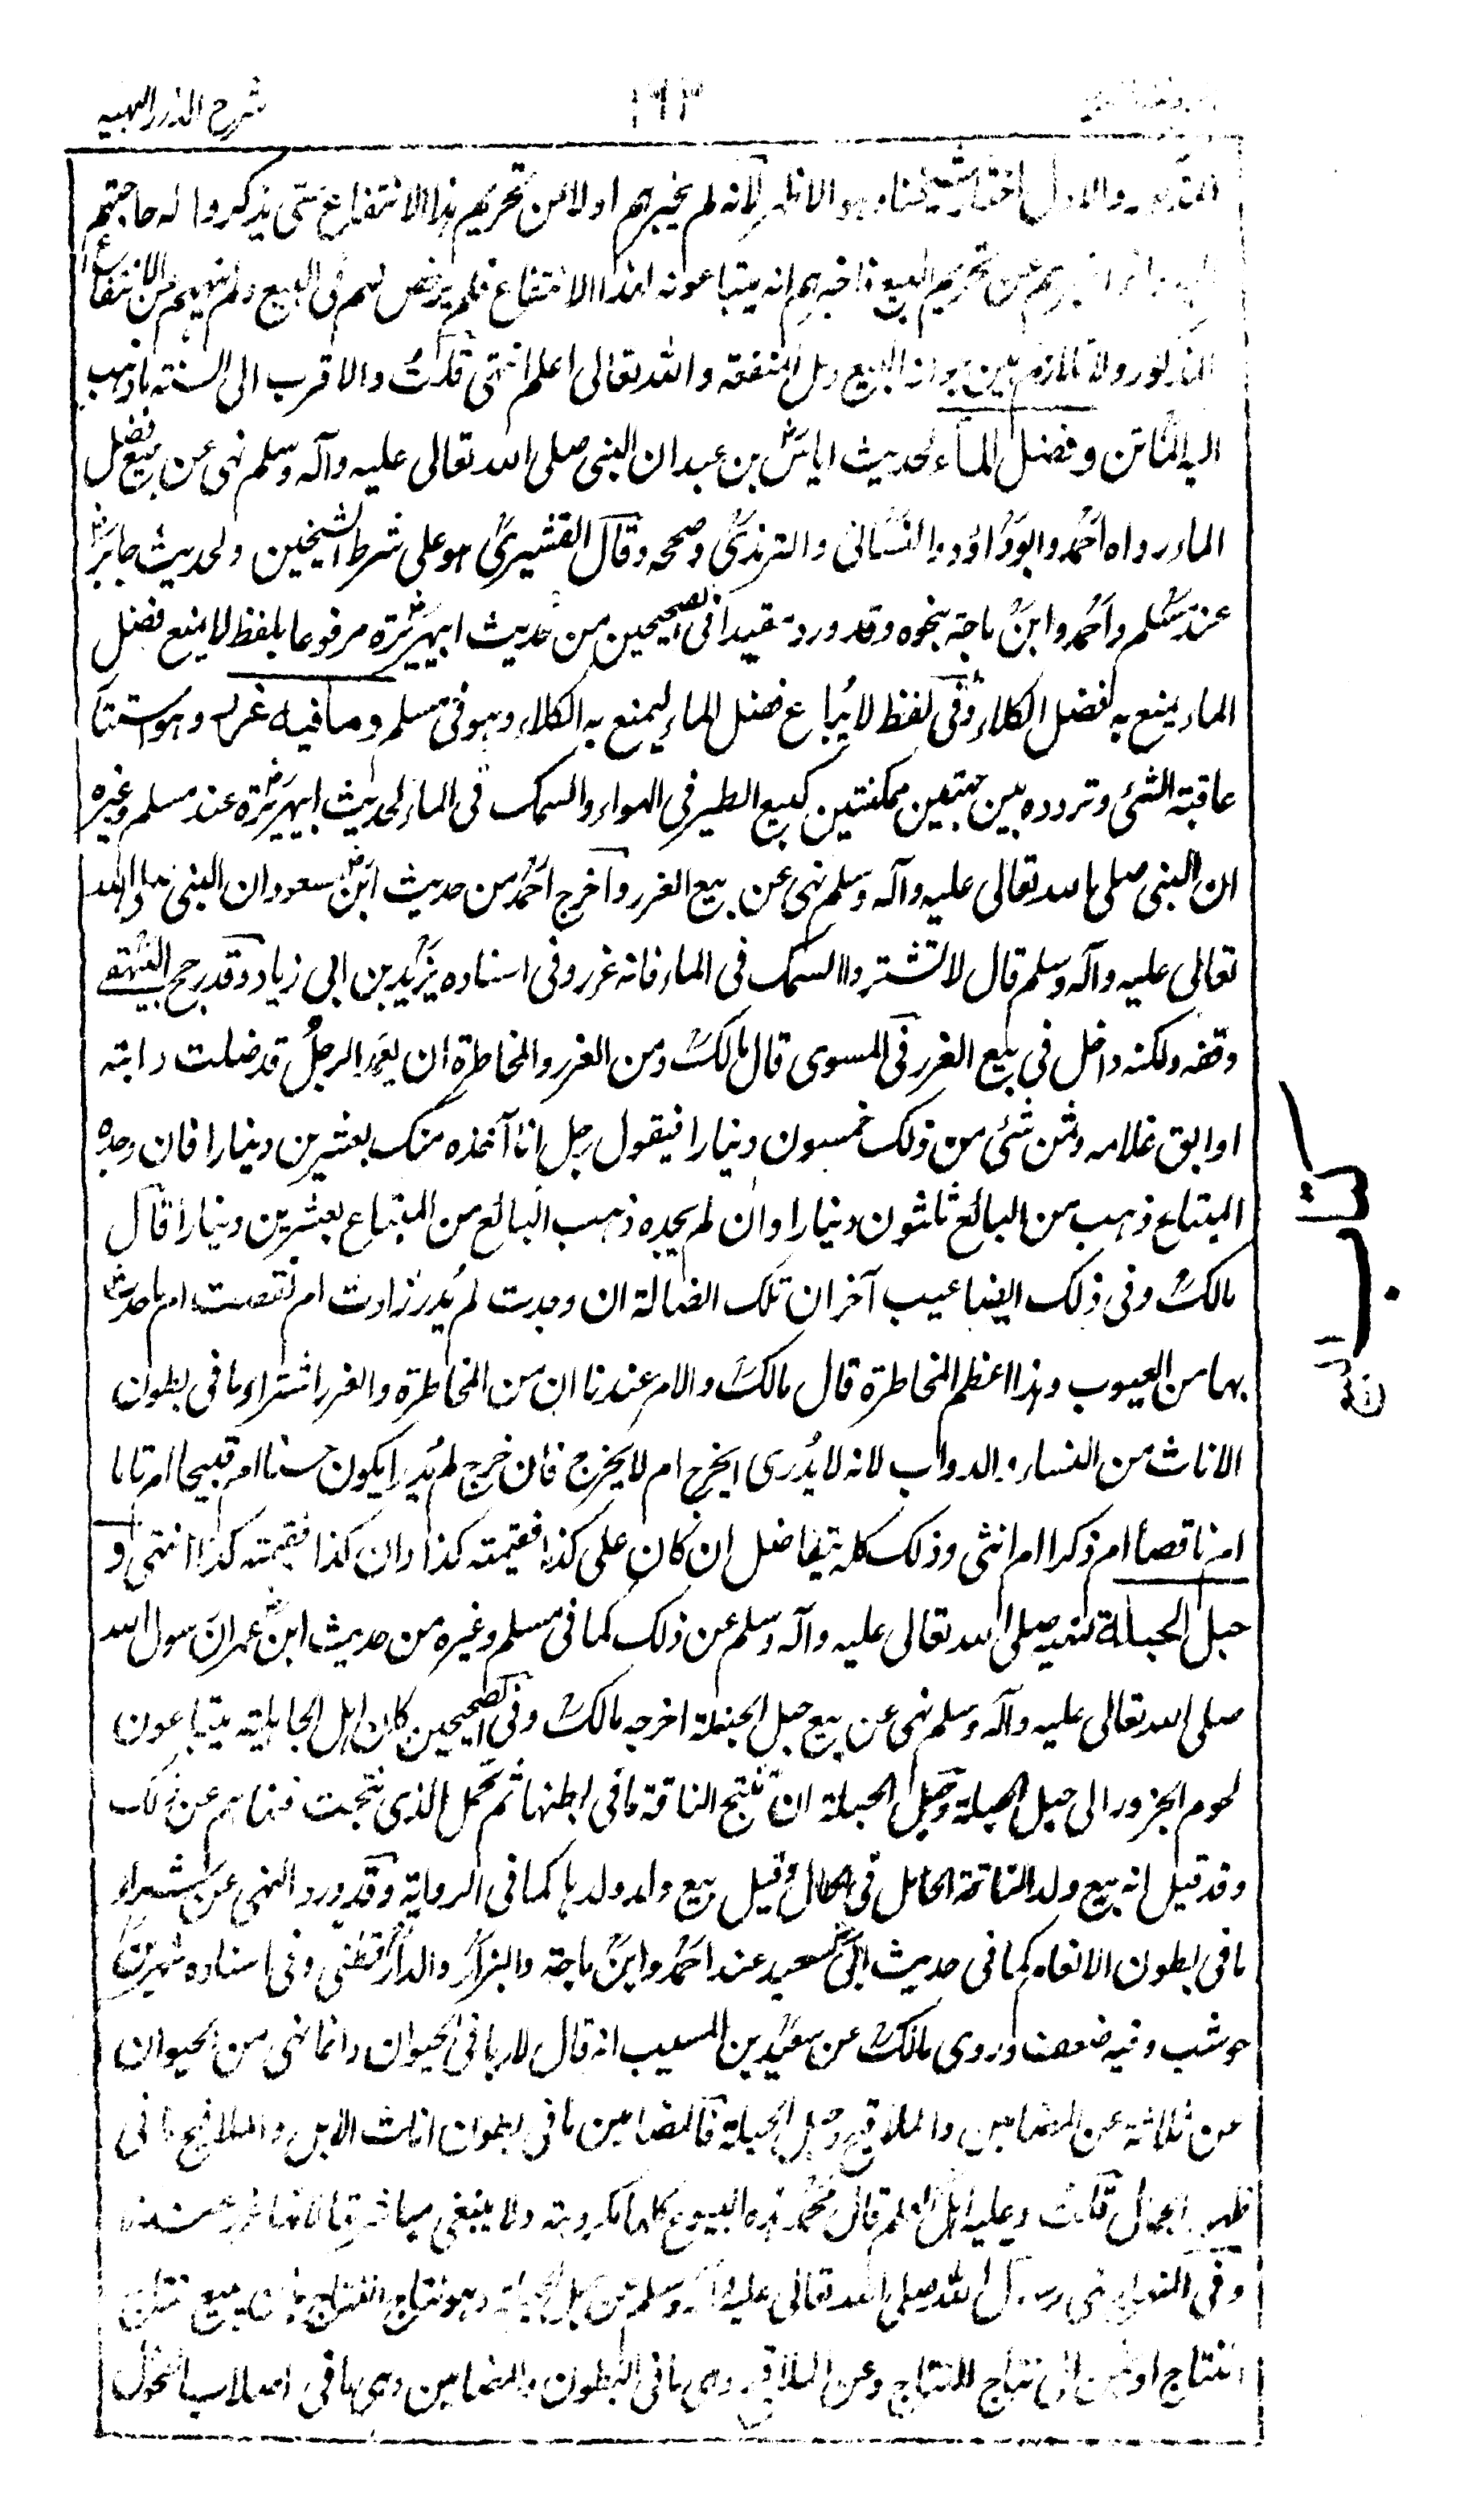 شرح الدرر البهية
١٩٣
والاول اختار شيخنا وهو الاظهر لانه لم يخبرهم اولا عن تحريم هذا الانتفاع حتى يذكروا له حاجتهم
عن تحريم البيع فاخبرهم انه يتباعونه لهذا الانتفاع فلم يرخص لهم فى البيع ولم ينههم عن الانتفاع
المذكور ولا تلازم بين جواز البيع وحل المنفعة والله تعالى اعلم انتهى قلت والاقرب الى السنة ما ذهب
اليه الماتن وفضل الماء لحديث اياس بن عبد ان النبى صلى الله تعالى عليه وآله وسلم نهى عن بيع فضل
الماء رواه احمد وابو داؤد والنسائى والترمذى وصححه وقال القشيرى هو على شرط الشيخين ولحديث جابر
عند مسلم واحمد وابن ماجة بنحوه وقد ورد مقيدا فى الصحيحين من حديث ابيهريرة مرفوعا بلفظ لا يمنع فضل
الماء ليمنع به فضل الكلاء وفى لفظ لا يباع فضل الماء ليمنع به الكلاء وهو فى مسلم وما فيه غرر وهو استتار
عاقبة الشئ وتردده بين جهتين ممكنتين كبيع الطير فى الهواء والسمك فى الماء لحديث ابيهريرة عند مسلم وغيره
ان النبى صلى الله تعالى عليه وآله وسلم نهى عن بيع الغرر واخرج احمد من حديث ابن مسعود ان النبى صلى الله
تعالى عليه وآله وسلم قال لا تشتروا السمك فى الماء فانه غرر وفى اسناده يزيد بن ابى زياد وقد رجح البيهقى
وقفه ولكنه داخل فى بيع الغرر فى المسوى قال مالك ومن الغرر والمخاطرة ان يعمد الرجل قد ضلت دابته
او ابق غلامه وثمن شئ من ذلك خمسون دينارا فيقول رجل انا آخذه منك بعشرين دينارا فان وجده
المبتاع ذهب من البائع ثلثون دينارا وان لم يجده ذهب البائع من المبتاع بعشرين دينارا قال
مالك وفى ذلك ايضا عيب آخر ان تلك الضالة ان وجدت لم يدر زادت ام نقصت ام ما حدث
بها من العيوب وهذا اعظم المخاطرة قال مالك والامر عندنا ان من المخاطرة والغرر اشتراء ما فى بطون
الاناث من النساء والدواب لانه لا يدرى ايخرج ام لا يخرج فان خرج لم يدر ايكون حسنا ام قبيحا ام تاما
ام ناقصا ام ذكرا ام انثى وذلك كله يتفاضل ان كان على كذا فقيمته كذا وان كذا فقيمته كذا انتهى و
حبل الحبلة لنهيه صلى الله تعالى عليه وآله وسلم عن ذلك كما فى مسلم وغيره من حديث ابن عمر ان رسول الله
صلى الله تعالى عليه وآله وسلم نهى عن بيع حبل الحبلة اخرجه مالك وفى الصحيحين كان اهل الجاهلية يتباعون
لحوم الجزور الى حبل الحبلة وحبل الحبلة ان تنتج الناقة ما فى بطنها ثم تحمل الذى نتجت فنهاهم عن ذلك
وقد قيل انه بيع ولد الناقة الحامل فى الحال وقيل بيع ولد ولدها كما فى الرواية وقد ورد النهى عن شراء
ما فى بطون الانعام كما فى حديث ابى سعيد عند احمد وابن ماجة والبزار والدارقطنى وفى اسناده شهر بن
حوشب وفيه ضعف وروى مالك عن سعيد بن المسيب انه قال لا ربا فى الحيوان وانما نهى من الحيوان
عن ثلاثة عن المضامين والملاقيح وحبل الحبلة فالمضامين ما فى بطون اناث الابل والملاقيح ما فى
ظهور الجمال قلت وعليه اهل العلم قال محمد هذه البيوع كلها مكروهة ولا ينبغى مباشرتها لانها غرر عندنا
وفى النهى رسول الله صلى الله تعالى عليه وآله وسلم عن حبل الحبلة وهو نتاج النتاج بان يبيع نتاج
النتاج او بثمن الى نتاج النتاج وعن الملاقيح وهى ما فى البطون والمضامين وهى ما فى اصلاب الفحول